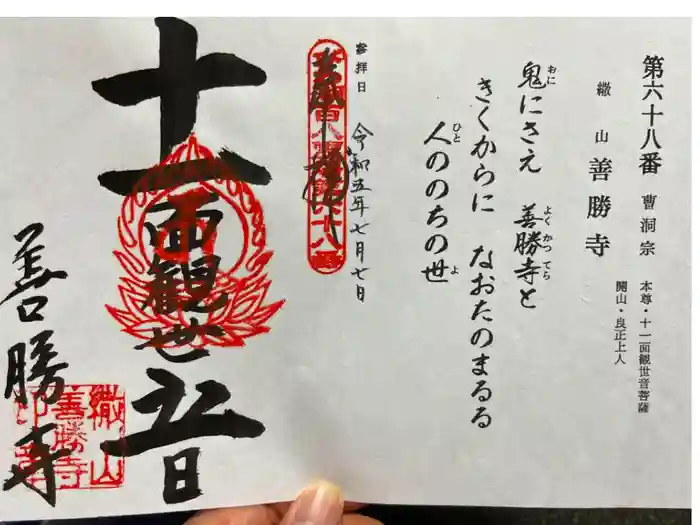 第六十八番 曹洞宗 本尊・十一面観世音菩薩
繖山 善勝寺 開山・良正上人
鬼にさえ 善勝寺と
おに よくかつてら
きくからに なおたのまるる
人ののちの世
ひと よ
参拝日 令和五年七月七日
奉拝
十一面観世音
善勝寺
繖山
善勝寺
印章